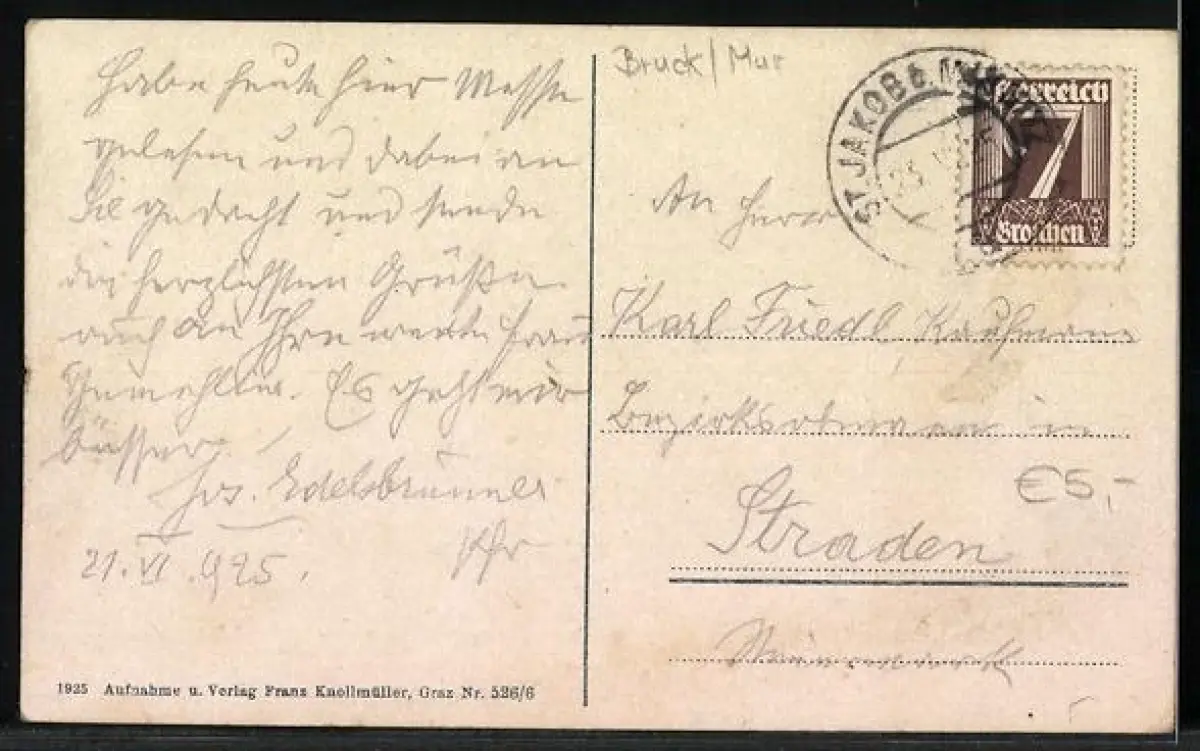 Habe heute hier Messe
gelesen und dabei an
Sie gedacht und sende
die herzlichsten Grüße
auch an Ihre werte Frau
Gemahlin. Es geht mir
besser.
Jos. Edelsbrunner
Pfr
21. VI. 925.
1925 Aufnahme u. Verlag Franz Knollmüller, Graz Nr. 526/6
Bruck/Mur
ST. JAKOB
Österreich
7
Groschen
An Herrn
Karl Friedl Kaufmann
Bezirksobmann in
€5,-
Straden